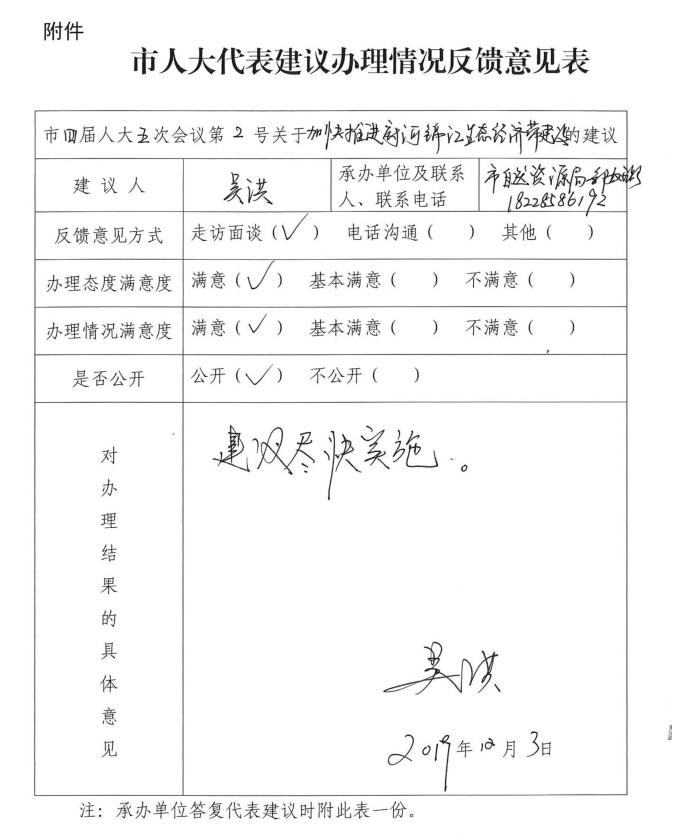 附件
市人大代表建议办理情况反馈意见表
市四届人大五次会议第 2 号关于加快推进府河锦江生态经济带建设的建议
建 议 人 吴洪 承办单位及联系人、联系电话 市自然资源局 18228586192
反馈意见方式 走访面谈（√） 电话沟通（ ） 其他（ ）
办理态度满意度 满意（√） 基本满意（ ） 不满意（ ）
办理情况满意度 满意（√） 基本满意（ ） 不满意（ ）
是否公开 公开（√） 不公开（ ）
对办理结果的具体意见
建议尽快实施。
吴洪
2019年12月3日
注：承办单位答复代表建议时附此表一份。